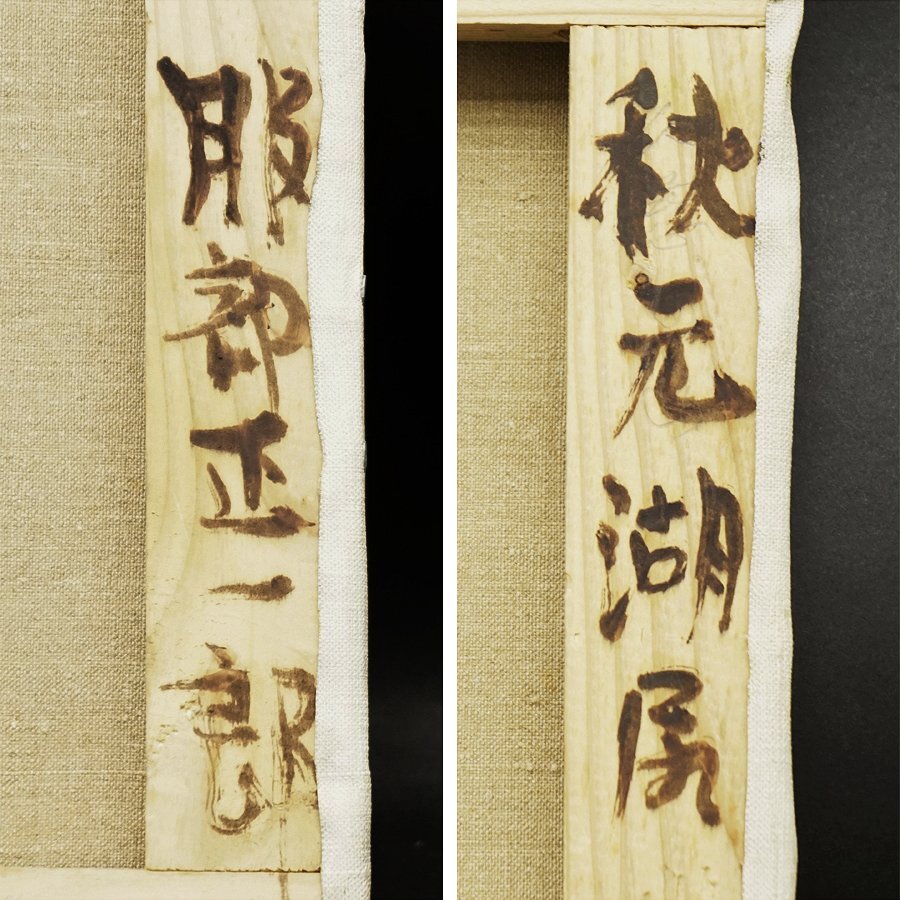 服部正一郎
秋元湖